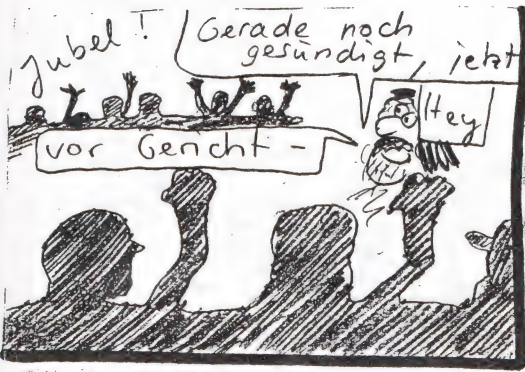 Jubel!
Gerade noch
gesündigt, jetzt
Hey
vor Gericht -